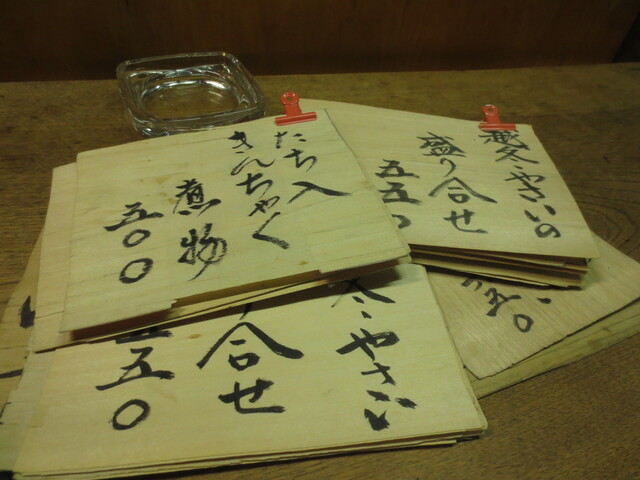 たち入
きんちゃく
煮物
五〇〇
越冬やさいの
盛り合せ
五五〇
冬やさい
合せ
五五〇
五〇